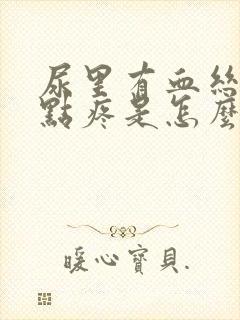 尿里有血絲
點疼是怎麼
暖心寶貝.